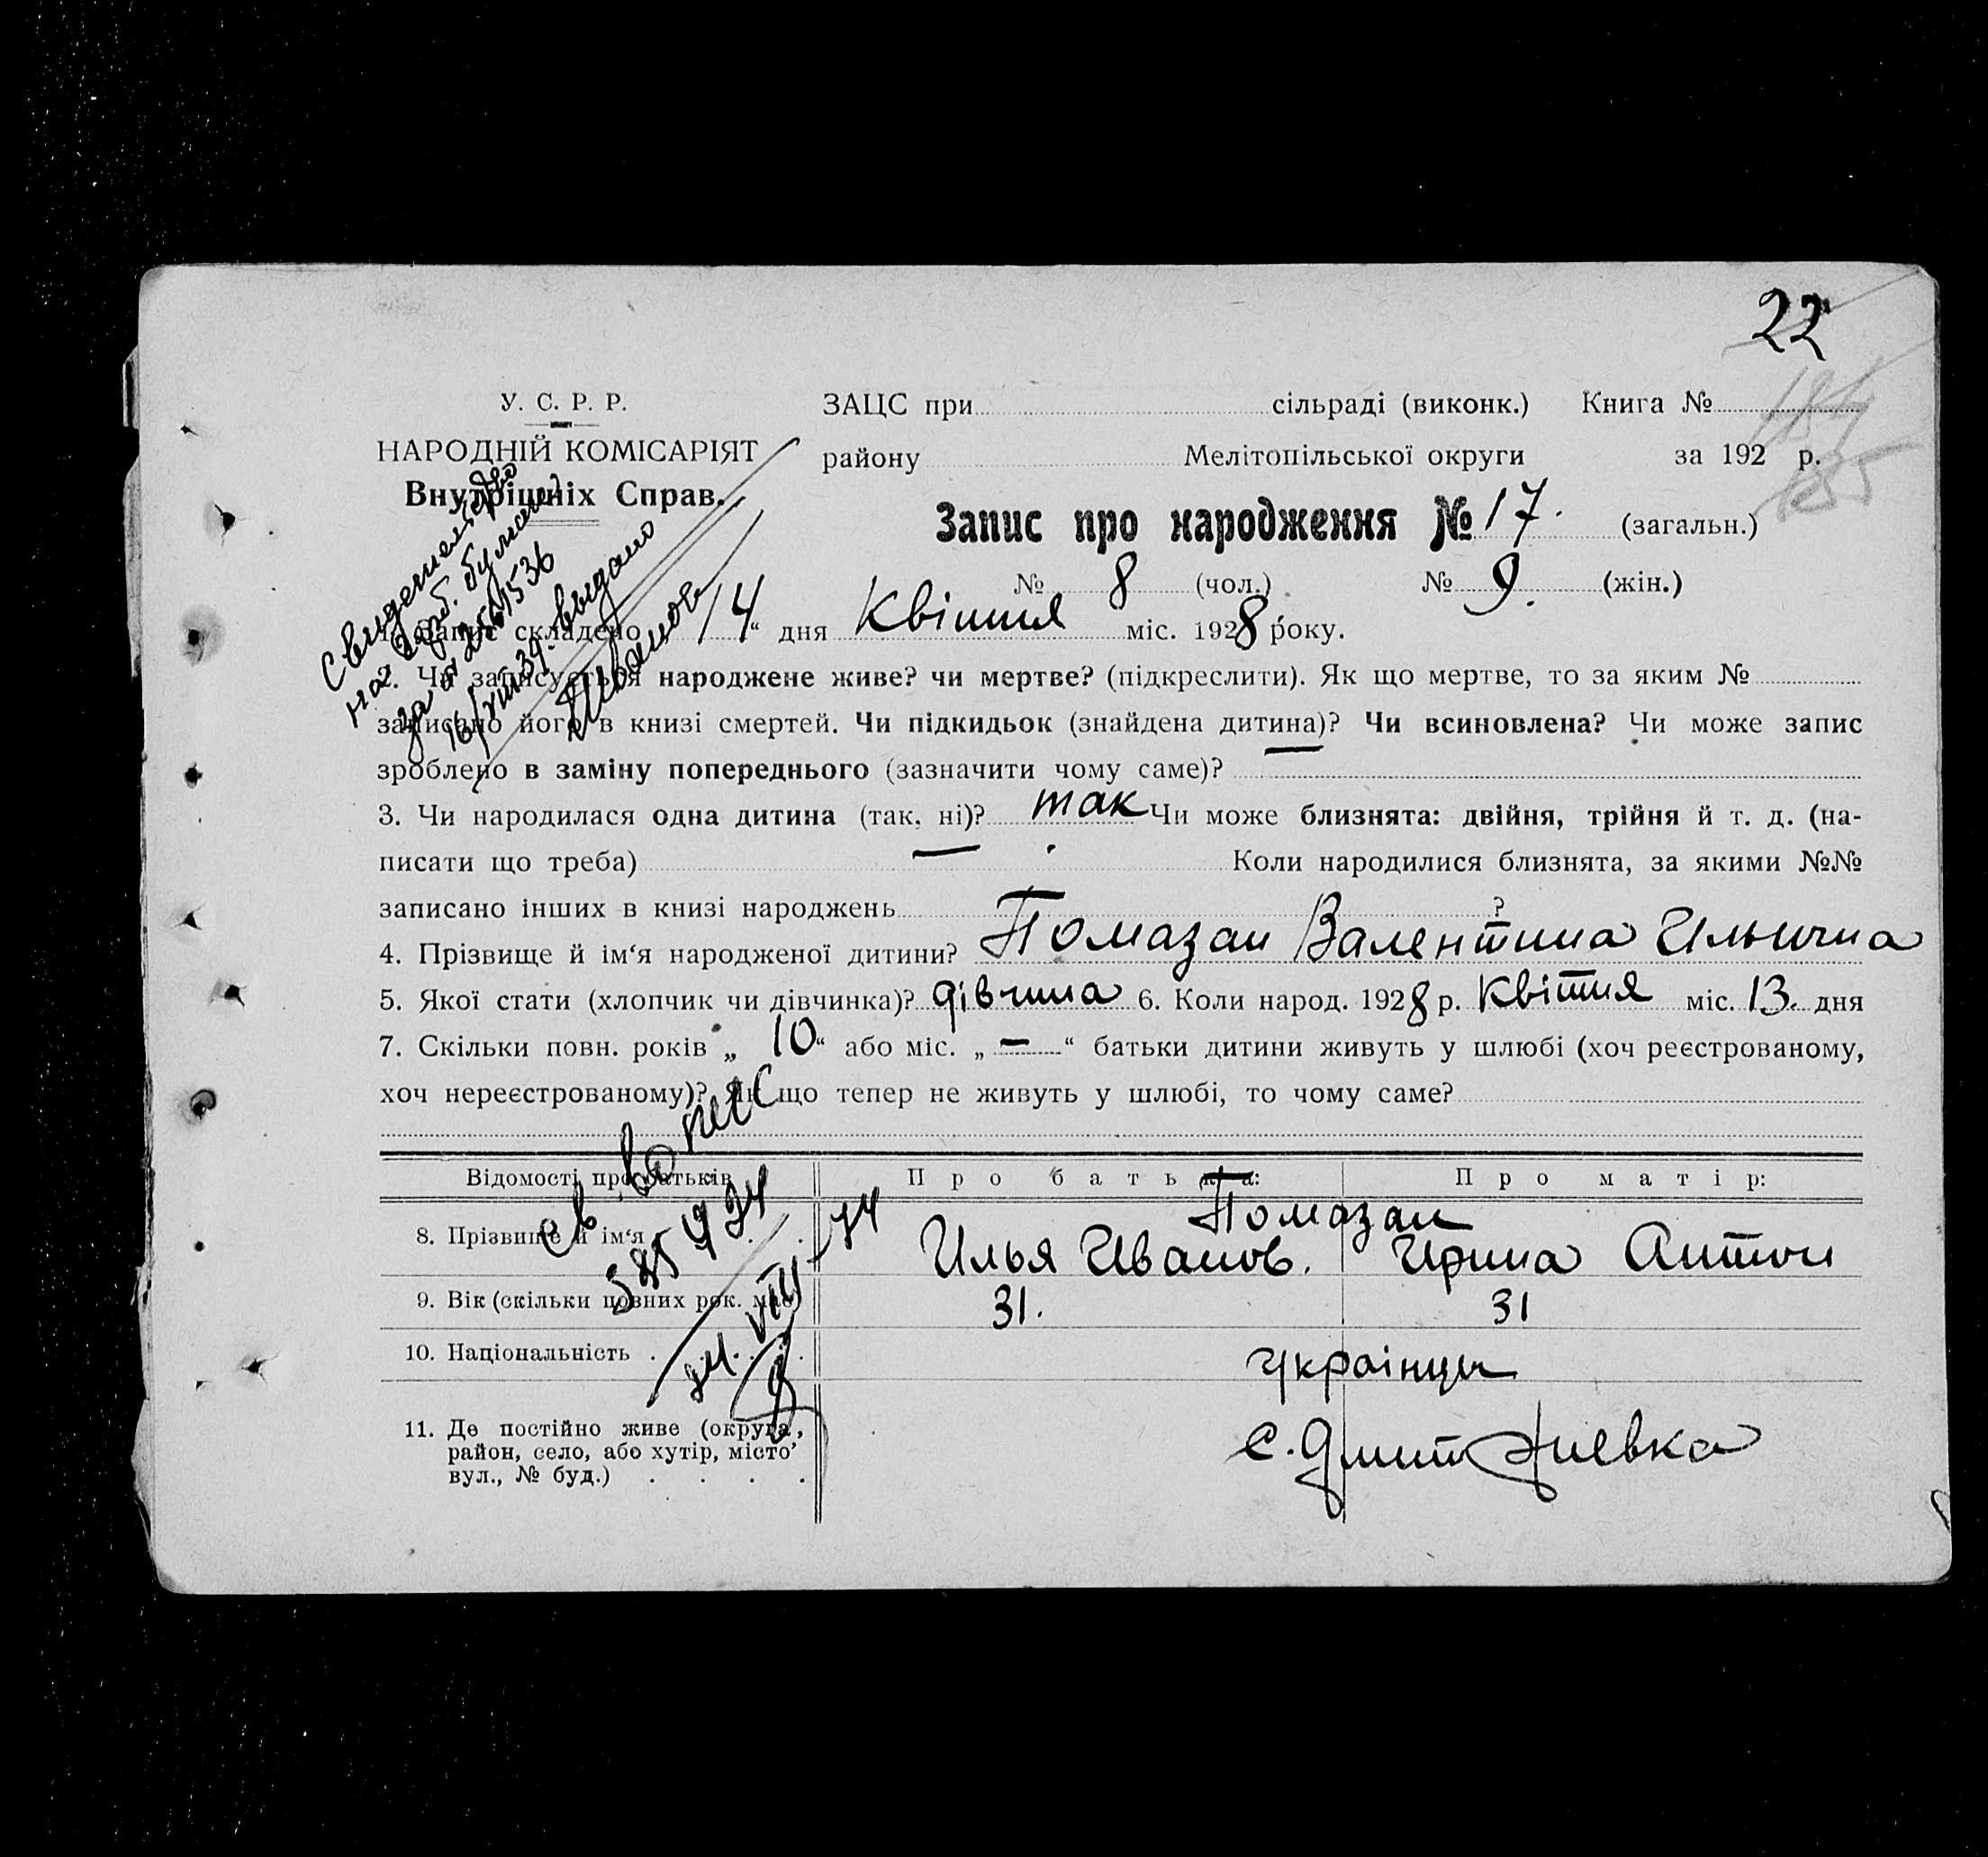 22
У. С. Р. Р.
НАРОДНІЙ КОМІСАРІЯТ
Внутрішніх Справ.
ЗАЦС при сільраді (виконк.) Книга №
району Мелітопільської округи за 192 р.
Запис про народження № 17. (загальн.)
№ 8 (чол.) № 9. (жін.)
1. Запис складено 14“ дня Квітня міс. 1928 року.
2. Чи записується народжене живе? чи мертве? (підкреслити). Як що мертве, то за яким №
записано його в книзі смертей. Чи підкидьок (знайдена дитина)? Чи всиновлена? Чи може запис
зроблено в заміну попереднього (зазначити чому саме)? —
3. Чи народилася одна дитина (так, ні)? так Чи може близнята: двійня, трійня й т. д. (на-
писати що треба) — Коли народилися близнята, за якими №№
записано інших в книзі народжень ?
4. Прізвище й ім‘я народженої дитини? Помазан Валентина Ильична
5. Якої стати (хлопчик чи дівчинка)? дівчина 6. Коли народ. 1928 р. Квітня міс. 13. дня
7. Скільки повн. років „ 10“ або міс. „ — “ батьки дитини живуть у шлюбі (хоч реєстрованому,
хоч нереєстрованому)? Як що тепер не живуть у шлюбі, то чому саме?
Відомості про батьків Про батька: Про матір:
Помазан
8. Прізвище й ім‘я Илья Иванов. Ирина Антон
9. Вік (скільки повних рок. має) 31. 31
10. Національність . українцы
11. Де постійно живе (округа,
район, село, або хутір, місто,
вул., № буд.) . . . . с. Дмитриевка
Свидетельство
на герб. бумаге
за №
выдано
Иванов